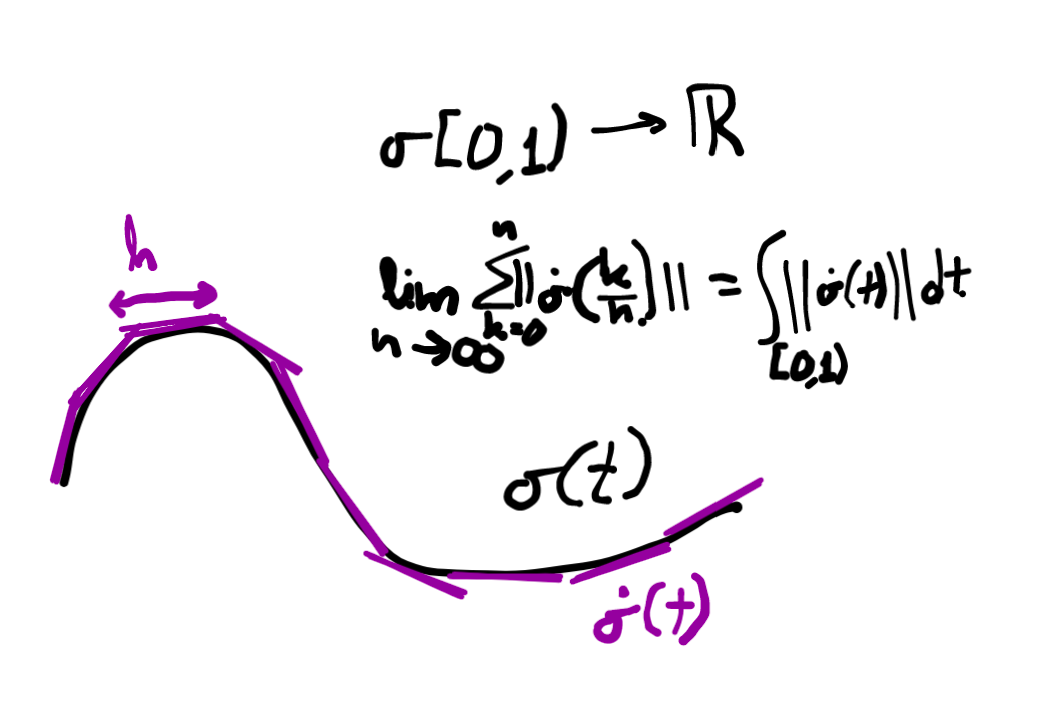 σ[0,1) → ℝ
h
lim n→∞ n ∑ k=0 ||σ̇(k/n)|| = ∫[0,1) ||σ̇(t)|| dt
σ(t)
σ̇(t)